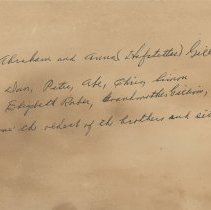 Abraham and Anna (Hofstetter) Gill
Dan, Peter, Abe, Chris, Simon
Elizabeth Raber, Grandmother Gilliom,
the oldest of the brothers and sis